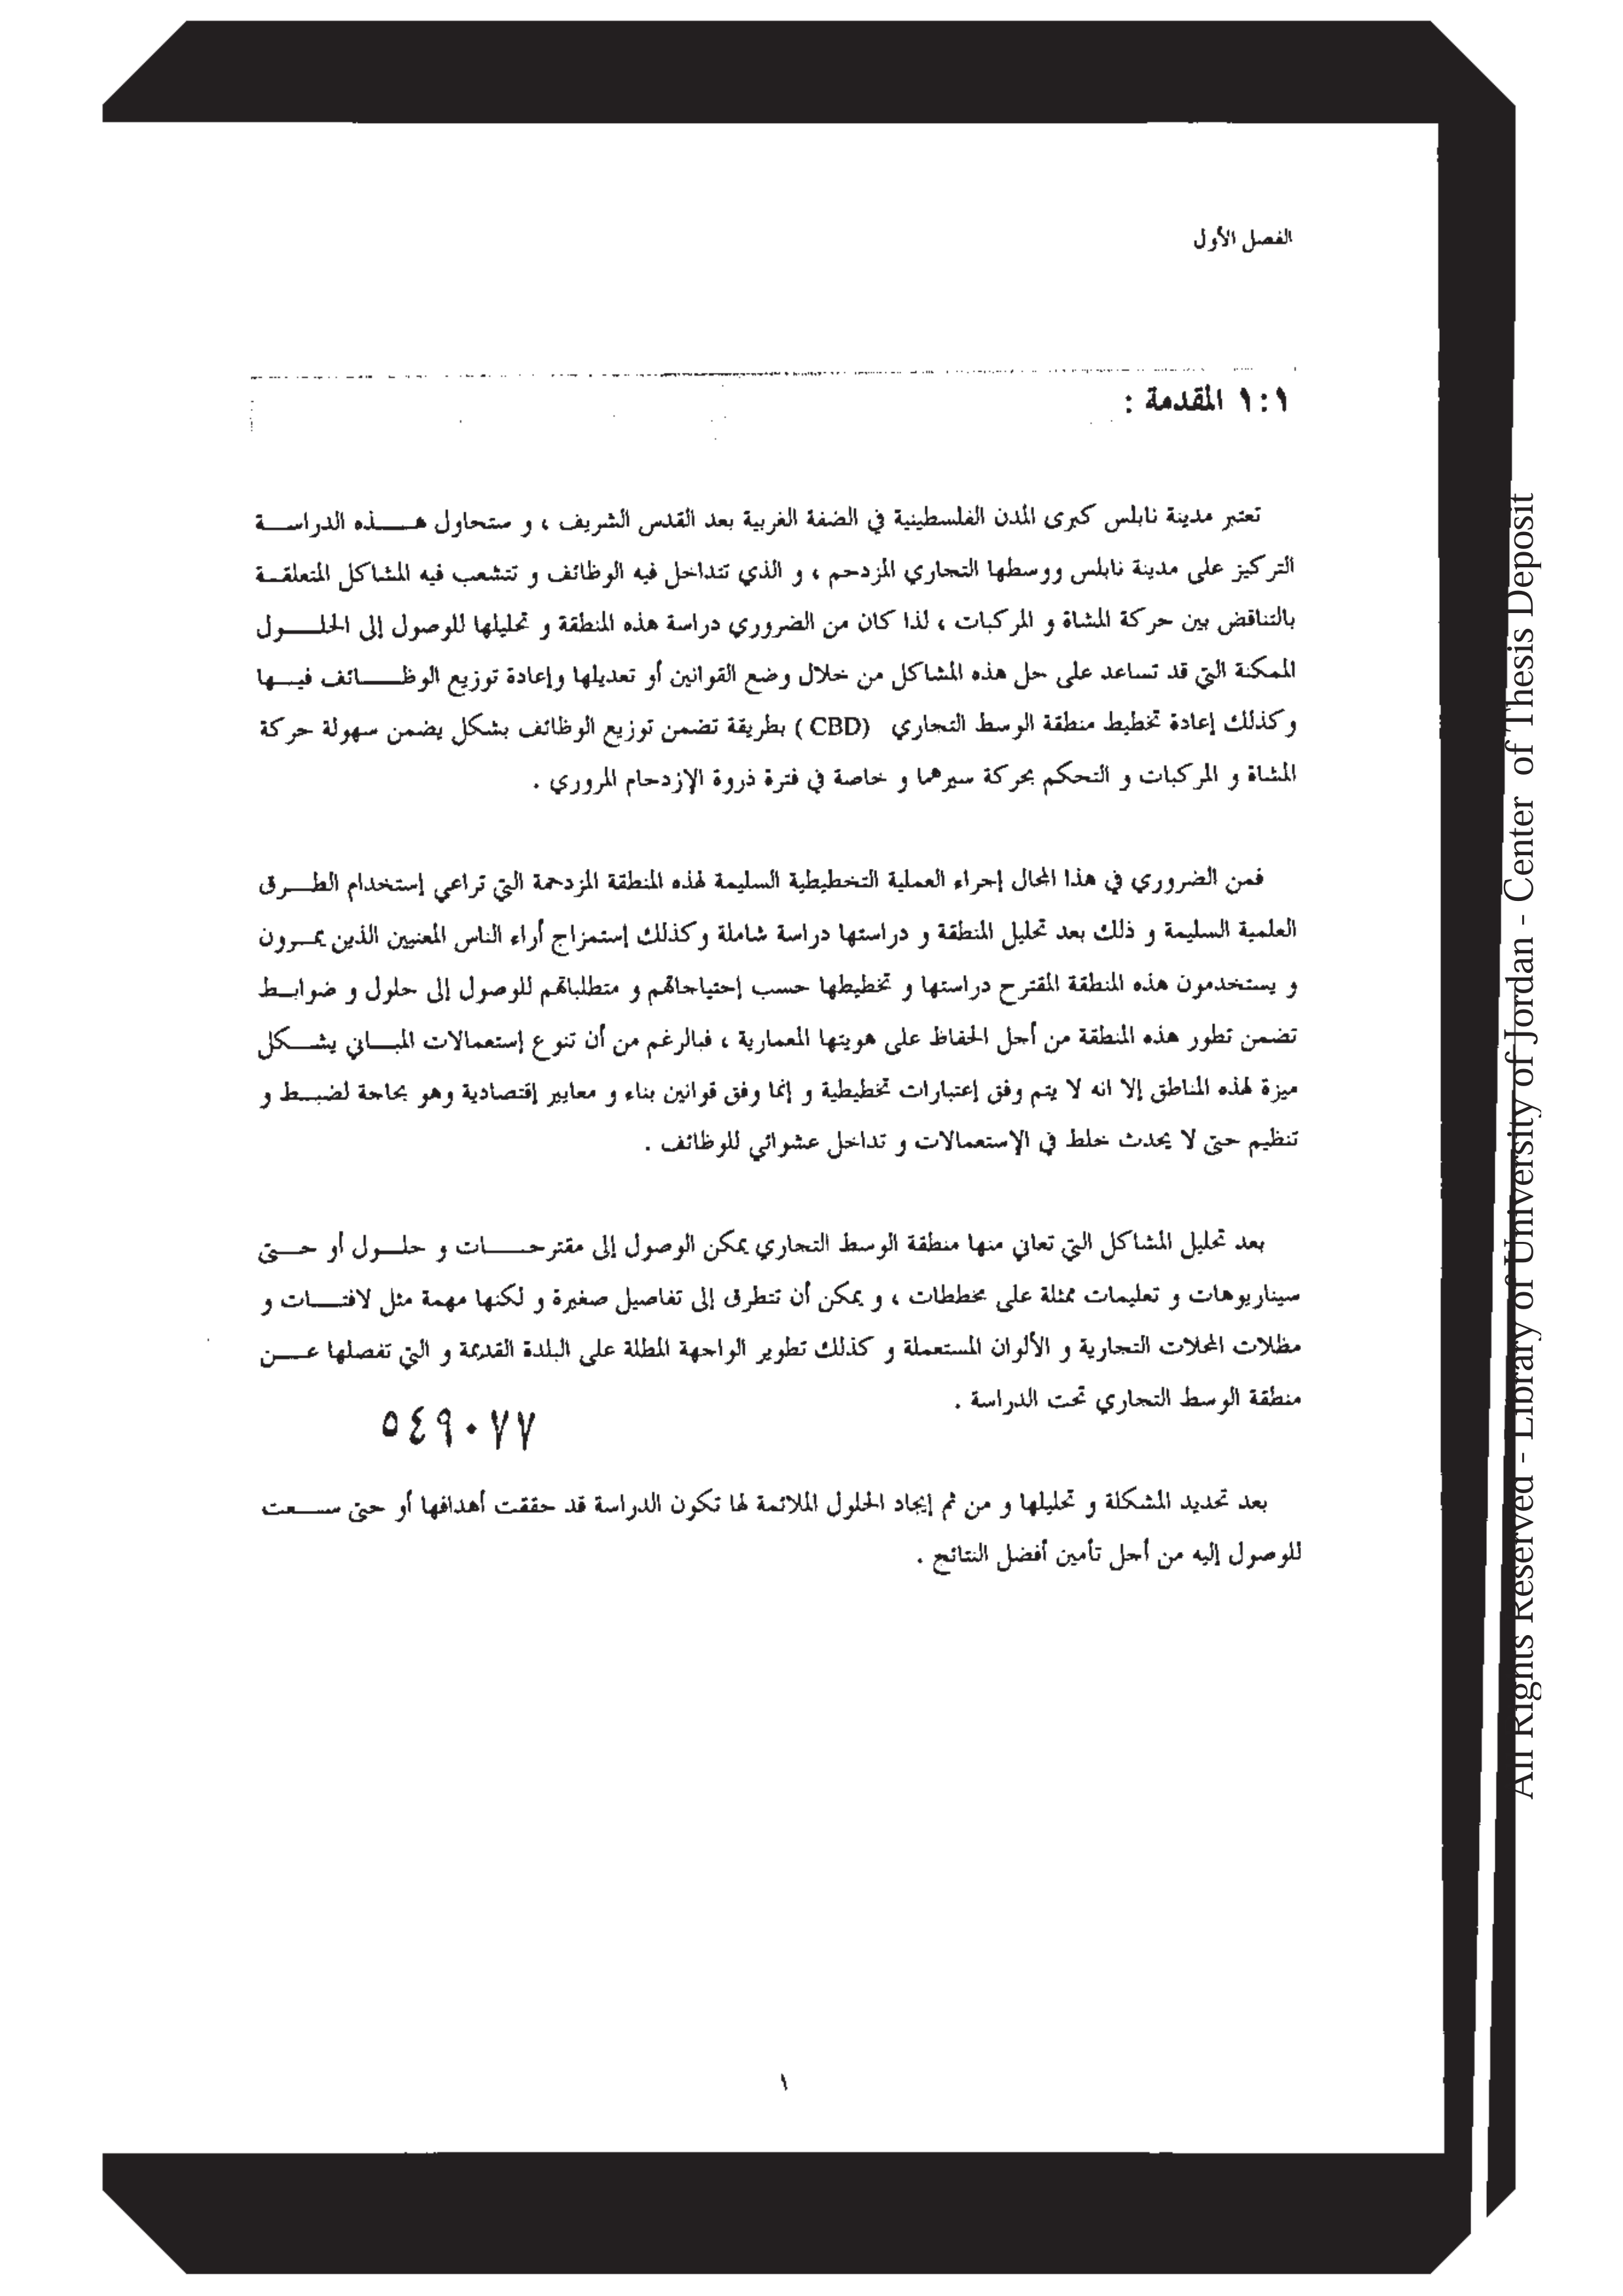 الفصل الأول
١:١ المقدمة :
تعتبر مدينة نابلس كبرى المدن الفلسطينية في الضفة الغربية بعد القدس الشريف ، و ستحاول هـــذه الدراســـة
التركيز على مدينة نابلس ووسطها التجاري المزدحم ، و الذي تتداخل فيه الوظائف و تتشعب فيه المشاكل المتعلقـة
بالتناقض بين حركة المشاة و المركبات ، لذا كان من الضروري دراسة هذه المنطقة و تحليلها للوصول إلى الحلـــول
الممكنة التي قد تساعد على حل هذه المشاكل من خلال وضع القوانين أو تعديلها وإعادة توزيع الوظـــائف فيـــها
وكذلك إعادة تخطيط منطقة الوسط التجاري (CBD ) بطريقة تضمن توزيع الوظائف بشكل يضمن سهولة حركة
المشاة و المركبات و التحكم بحركة سيرهما و خاصة في فترة ذروة الإزدحام المروري .
فمن الضروري في هذا المجال إجراء العملية التخطيطية السليمة لهذه المنطقة المزدحمة التي تراعي إستخدام الطـــرق
العلمية السليمة و ذلك بعد تحليل المنطقة و دراستها دراسة شاملة وكذلك إستمزاج أراء الناس المعنيين الذين يمـــرون
و يستخدمون هذه المنطقة المقترح دراستها و تخطيطها حسب إحتياجاتهم و متطلباتهم للوصول إلى حلول و ضوابـط
تضمن تطور هذه المنطقة من أجل الحفاظ على هويتها المعمارية ، فبالرغم من أن تنوع إستعمالات المبـــاني يشـــكل
ميزة لهذه المناطق إلا انه لا يتم وفق إعتبارات تخطيطية و إنما وفق قوانين بناء و معايير إقتصادية وهو بحاجة لضبـــط و
تنظيم حتى لا يحدث خلط في الإستعمالات و تداخل عشوائي للوظائف .
بعد تحليل المشاكل التي تعاني منها منطقة الوسط التجاري يمكن الوصول إلى مقترحـــات و حلـــول أو حـــتى
سيناريوهات و تعليمات ممثلة على مخططات ، و يمكن أن تتطرق إلى تفاصيل صغيرة و لكنها مهمة مثل لافتـــات و
مظلات المحلات التجارية و الألوان المستعملة و كذلك تطوير الواجهة المطلة على البلدة القديمة و التي تفصلها عـــن
منطقة الوسط التجاري تحت الدراسة .
٥٤٩٠٧٧
بعد تحديد المشكلة و تحليلها و من ثم إيجاد الحلول الملائمة لها تكون الدراسة قد حققت أهدافها أو حتى ســـعت
للوصول إليه من أجل تأمين أفضل النتائج .
١
All Rights Reserved - Library of University of Jordan - Center of Thesis Deposit